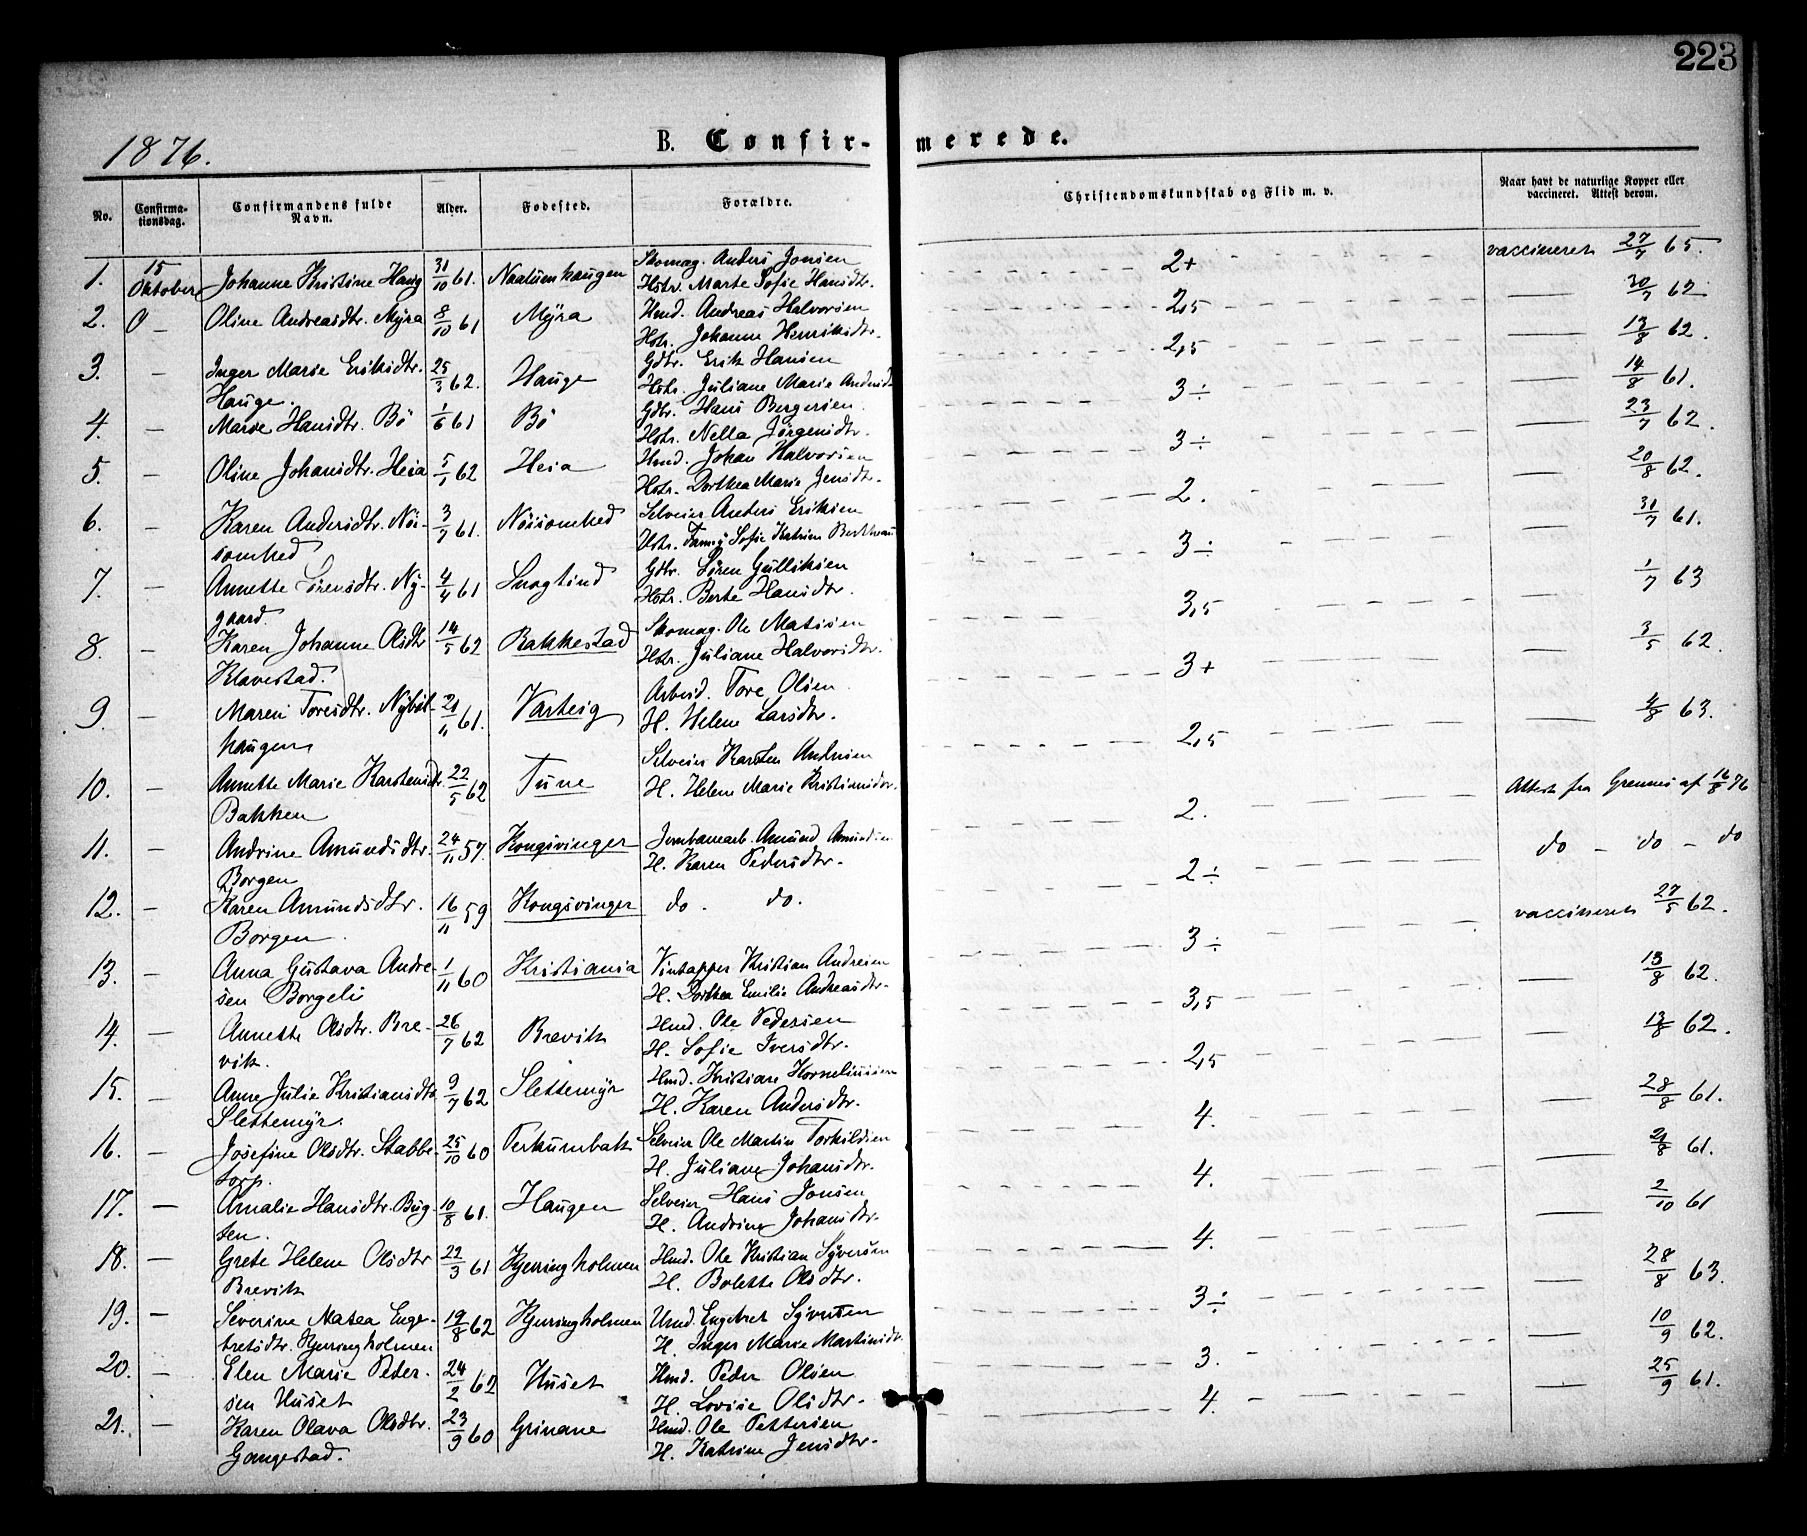 223
1876.
B. Confirmerede.
No.
Confirma-
tionsdag.
Confirmandens fulde
Navn.
Alder.
Fødested.
Forældre.
Christendomskundskab og Flid m. v.
Naar havt de naturlige Kopper eller
vaccineret. Attest derom.
1. 15 Oktober Johanne Kristine Haug 31/10 61. Naalumhaugen Skomag. Anders Jonsen 2+ vaccineret 27/7 65.
Hstr. Marte Sofie Hansdtr.
2. O — Oline Andreasdtr. Myra 8/10 61 Myra Hmd. Andreas Halvorsen 2,5 — 30/7 62
Hstr. Johanne Henriksdtr.
3. — Inger Marie Eriksdtr. 25/3 62. Hauge Gdbr. Erik Hansen 2,5 — 13/8 62.
Hauge. Hstr. Juliane Marie Andersdtr
4. — Marve Hansdtr. Bö 1/6 61 Bö Gdbr. Hans Bergersen 3÷ — 14/8 61.
Hstr. Nella Jörgensdtr.
5. — Oline Johansdtr. Heia 5/1 62 Heia Hmd. Johan Halvorsen 3÷ — 23/7 62.
Hstr. Dorthea Marie Jensdtr.
6. — Karen Andersdtr. Nöi- 3/7 61. Nöisomhed Selveier Anders Eriksen 2. — 20/8 62.
somhed Hstr. Fanny Sofie Katrine
7. — Annette Sörensdtr. Ny- 4/4 61 Gdbr. Sören Gulliksen 3÷ — 31/7 61.
gaard. Hstr. Berte Hansdtr.
8. — Karen Johanne Olsdtr 14/5 62 Bakkestad Skomag. Ole Matisen 3,5 — 1/7 63
Klavestad. Hstr. Juliane Halvorsdtr.
9. — Maren Toresdtr. 21/11 61. Varteig Arbeid. Tore Olsen 3+ — 3/5 62.
haugen H. Helene Larsdtr.
10. — Annette Marie Karstensdtr 22/5 62 Tune Selveier Karsten Andersen 2,5 — 4/8 63.
Bakken H. Helene Marie Kristiansdtr.
11. — Andrine Amundsdtr. 24/11 57. Kongsvinger Jernbanearb. Amund Amundsen 2. Attest fra af 16/8 76
Borgen H. Karen Pedersdtr.
12. — Karen Amundsdtr. 16/11 59 Kongsvinger do. do. 2÷ do — do — do
Borgen.
13. — Anna Gustava Andre- 1/11 60 Kristiania Vintapper Kristian Andresen 3÷ vaccineret 27/5 62.
sen Borgeli H. Dorthea Emilie Andreasdtr.
14. — Annette Olsdtr. Bre- 26/7 62 Brevik Hmd. Ole Pedersen 3,5 — 13/8 62.
vik. H. Sofie Iversdtr.
15. — Anne Julie Kristiansdtr 9/7 62 Slettemyr Hmd. Kristian Korneliussen 2,5 — 13/8 62.
Slettemyr. H. Karen Andersdtr.
16. — Josefine Olsdtr. Stabbe- 25/10 60 Selveier Ole Martin Torkildsen 4. — 28/8 61.
torp. H. Juliane Johansdtr.
17. — Amalie Hansdtr. Byg- 10/8 61. Haugen Selveier Hans Jonsen 4. — 21/8 61.
sen. H. Andrine Johansdtr.
18. — Grete Helene Olsdtr 22/3 61 Kjerringholmen Hmd. Ole Kristian Syversen 4. — 2/10 61
Brevik H. Bolette Olsdtr.
19. — Severine Matea Enge- 19/8 62 Kjerringholmen Hmd. Engebret Syversen 3÷ — 28/8 63.
bretsdtr. Kjerringholmen H. Inger Marie Martinsdtr.
20. — Elen Marie Peder- 24/2 62 Huset Hmd. Peder Olsen 3. — 10/9 62.
sen Huset H. Lovise Olsdtr.
21. — Karen Olava Olsdtr. 23/9 60 Grinane Hmd. Ole Pettersen 4. — 25/9 61.
Gangestad. H. Katrine Jensdtr.